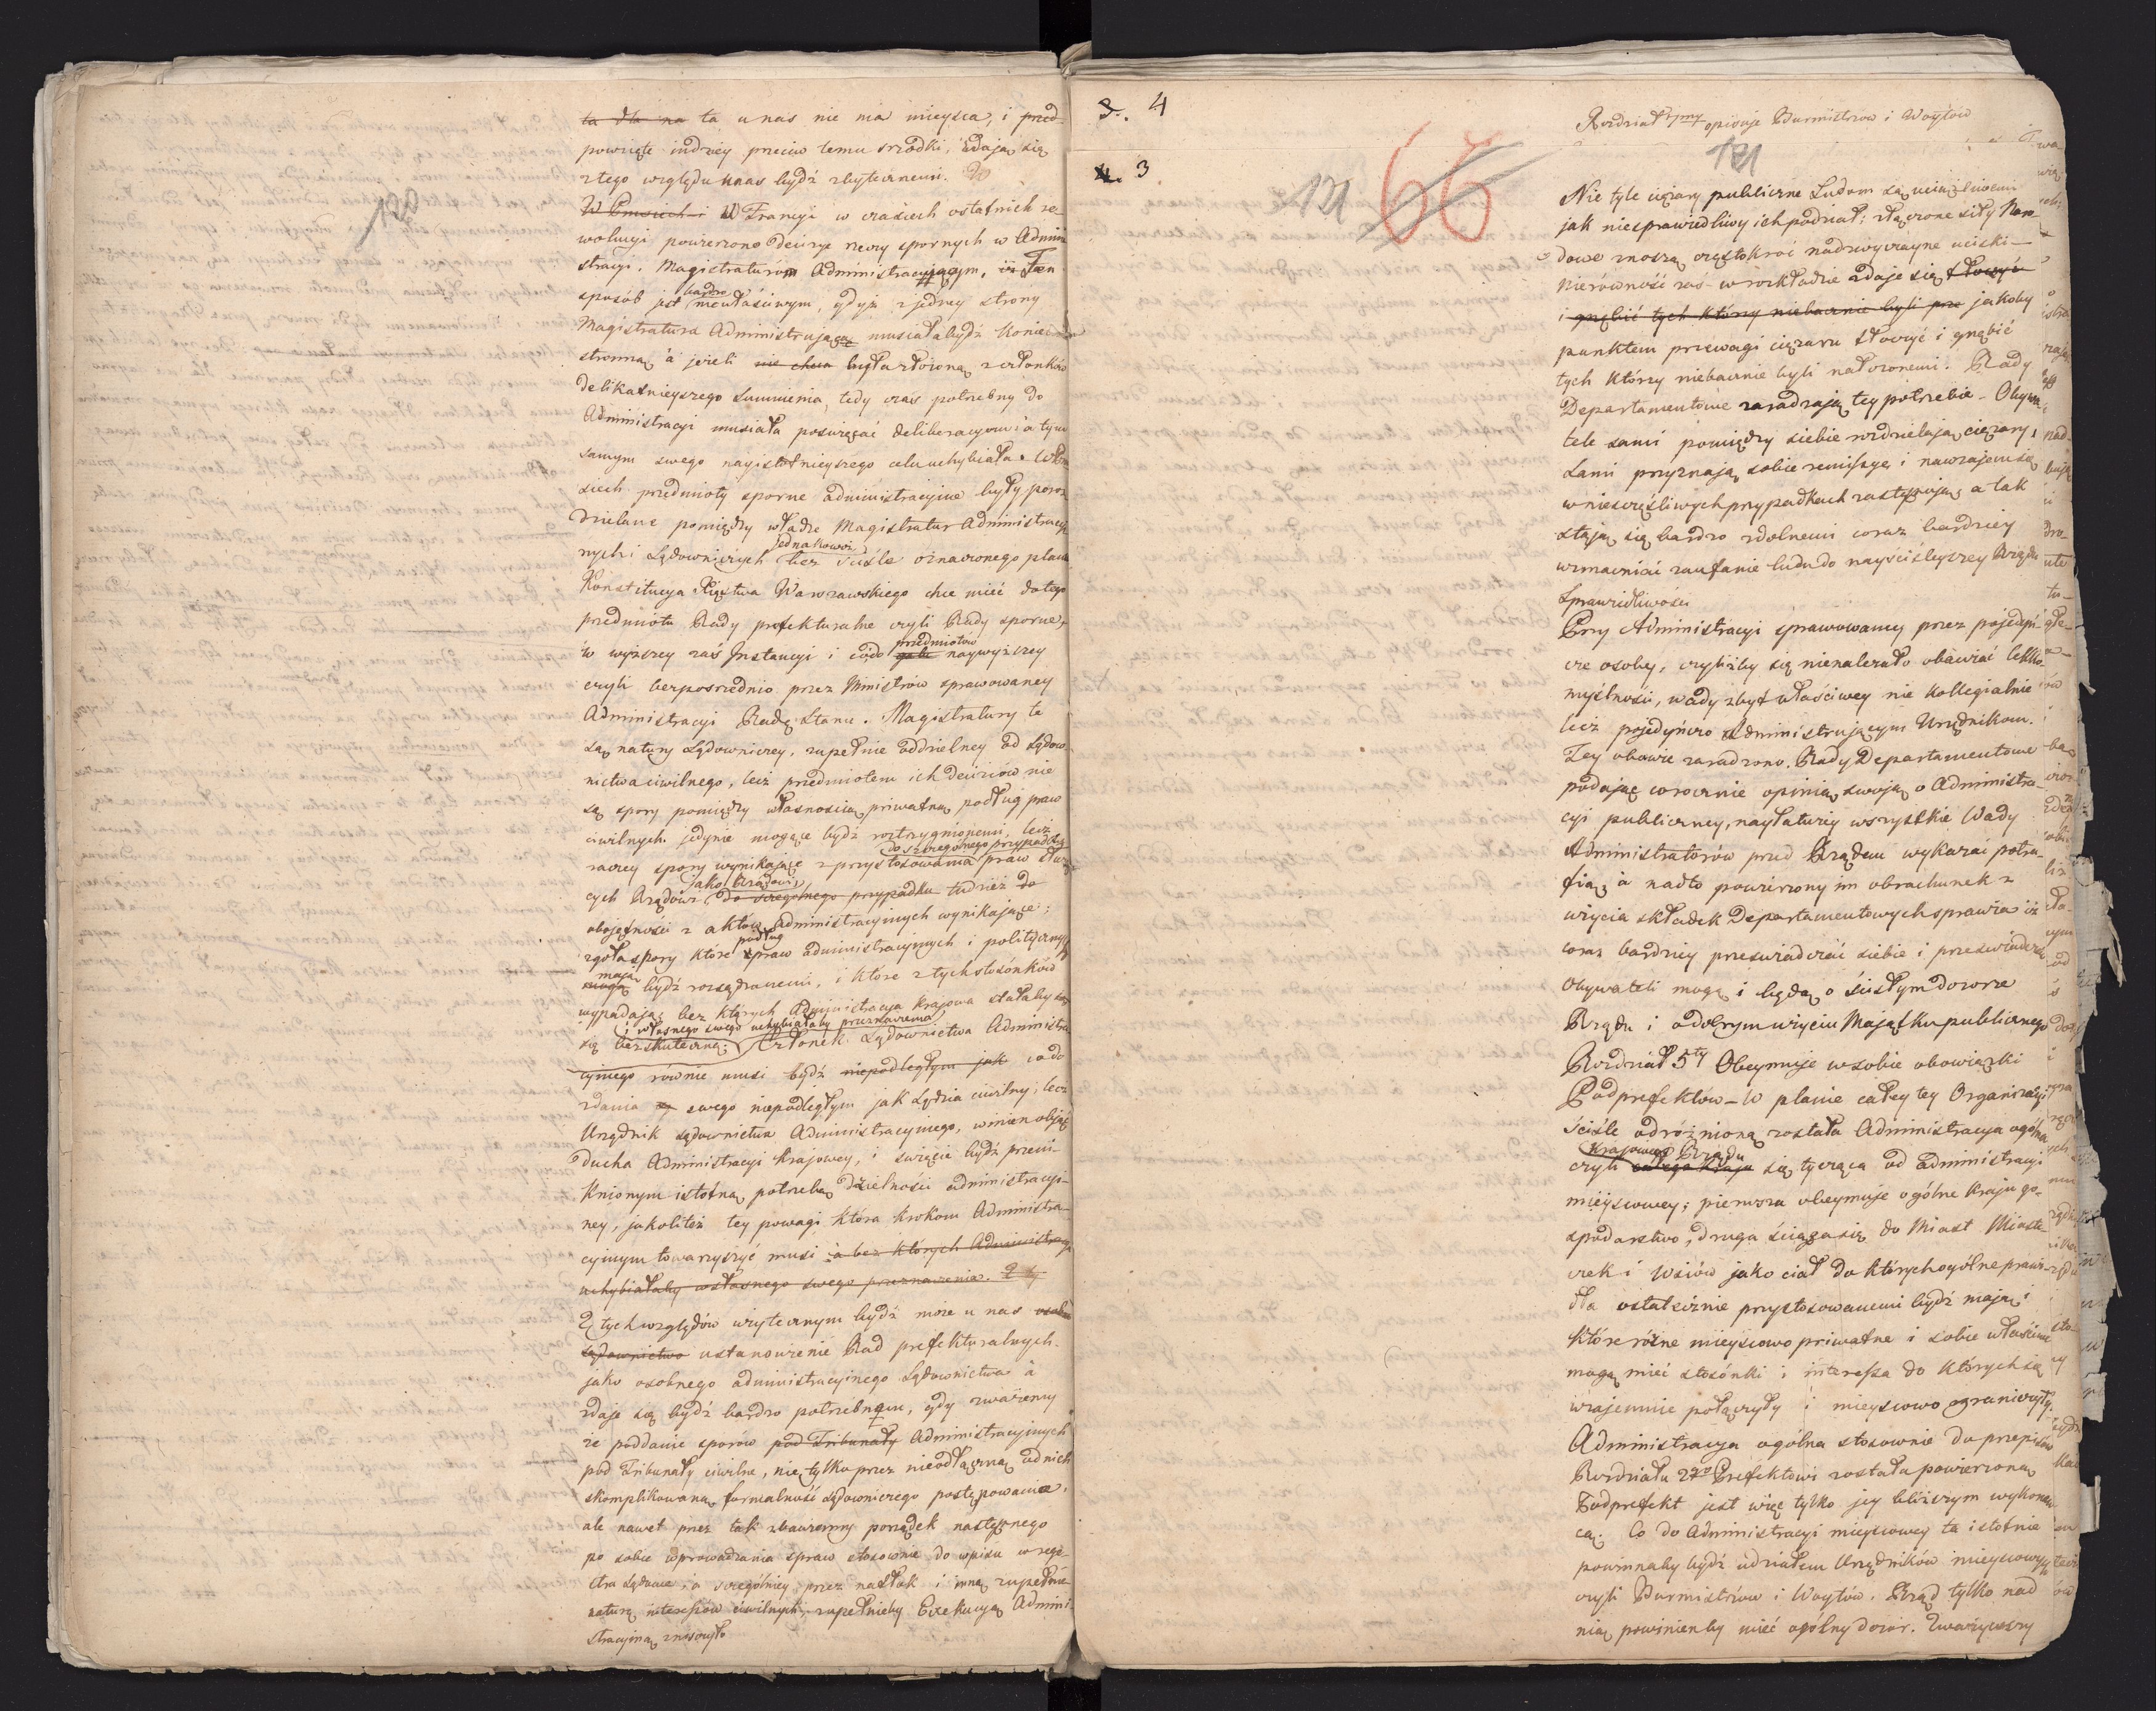 120
ta dla na ta u nas nie ma mieysca, i przed-
powzięte indziey przeciw temu srzodki, zdają się
z tego względu u nas bydź zbytecznemi.
W Francyi w czasiech ostatnich re-
wolucyi powierzono decizye rzeczy spornych w Admini
stracyi, Magistraturóm Administracyjnym, Ten
sposób jest bardzo niewłaściwym, gdyż z jedney strony
Magistratura Administrująca musiała bydź koniecznie
stronną à jeżeli nie chca była złożoną z członków
delikatnieyszego Sumnienia, tedy czas potrzebny do
Administracyi musiała poświęcać deliberacyom à tym
samym swego nayistotnieyszego celu uchybiała.
siech przedmioty sporne administracyjne były poroz
dzielane pomiędzy władze Magistratur Administracyj
nych i Sądowniczych jednakowoż bez ściśle oznaczonego planu
Konstitucya Xięstwa Warszawskiego chce mieć do tego
przedmiotu Rady prefekturalne czyli Rady sporne,
w wyższey zaś Instancyi i co do przedmiotów naywyższey
czyli bezposrednio przez Ministrów sprawowaney
Administracyi Radę Stanu. Magistratury te
są natury Sądowniczey, zupełnie oddzielney od Sądow-
nictwa ciwilnego, lecz przedmiotem ich deciziów nie
są spory pomiędzy własnością priwatną podług praw
ciwilnych jedynie mogące bydź roztrzygnionemi, lecz
raczey spory wynikające z przystosowania do szczególnego przypadku praw służą
cych Rządowi jako Rządowi do szczególnego przypadku tudzież do
obojętności z aktów Administracyjnych wynikające;
zgoła spory które podług praw administracyjnych i politycznych
mają mogą bydź rozsądzanemi, i które z tych stosónków
wypadają, bez których Administracya krajowa stałaby
się bezskuteczną i własnego swego uchybiałaby przeznaczenia; Członek Sądownictwa Administra
cyjnego równie musi bydź niepodległym jak co do
zdania swego niepodległym jak Sędzia ciwilny; lecz
Urzędnik sądownictwa Administracyjnego, winien objąć
ducha Administracyi krajowey, i święcie bydź przeni-
knionym istotną potrzebą dzielności administracyi-
ney, jako też tey powagi która krokom Administra-
cyjnym towarzyszyć musi à bez których Administracya
uchybiałaby własnego swego przeznaczenia.
Z tych względów użytecznym bydź może u nas
sądownictwo ustanowienie Rad prefekturalnych
jako osobnego administracyjnego Sądownictwa à
zdaje się bydź bardzo potrzebnem, gdy zważemy
że poddanie sporów pod Tribunały Administracyjnych
pod Tribunały ciwilne, nie tylko przez nieodłączną od nich
skomplikowaną formalność sądowniczego postępowania,
ale nawet przez tak zbawienny porządek następnego
po sobie wprowadzania spraw stosownie do wpisu w regi-
stra sądowe, à szczególniey przez natłok i inną zupełnie
naturę interessów ciwilnych, zupełnieby Exekucyą Admini
stracyjną zniszczyło
3. 4
4. 3
121
66
Rozdział opisuje Burmistrzow i Woytów
121
Nie tyle ciężary publiczne Ludom są uciążliwemi
jak niesprawiedliwy ich podział; złączone siły Naro-
dowe znoszą częstokroć nadzwyczayne uciski—
nierówność zaś w rozkładzie zdaje się tłoczyć
i gnębić tych którzy niebacznie byli prze jakoby
punktem przewagi ciężaru tłoczyć i gnębić
tych którzy niebacznie byli nałożonemi. Rady
Departamentowe zaradzają tey potrzebie— Obywa-
tele sami pomiędzy siebie rozdzielają ciężary,
Sami przyznają sobie remissye, i nawzajem się
w nieszczęśliwych przypadkach zastępują, a tak
stają się bardzo zdolnemi coraz bardziey
wzmacniać zaufanie ludu do nayściśleyszey Rządu
Sprawiedliwości
Przy Administracyi sprawowaney przez pojedyń-
cze osoby, czyliżby się nienależało obawiać lekko-
myślności, wady zbyt właściwey nie kollegialnie
lecz pojedyńczo Administrującym Urzędnikom.
Tey obawie zaradzono. Rady Departamentowe
podając corocznie opinią swoją o Administra-
cyi publiczney, nayłatwiey wszystkie Wady
Administratorów przed Rządem wykazać potra-
fią, à nadto powierzony im obrachunek z
użycia składek Departamentowych sprawia iż
coraz bardziey przeświadczać siebie i przeświadcza
Obywateli mogą i będą o ścisłym dozorze
Rządu i o dobrym użyciu Majątku publicznego
Rozdział 5ty Obeymuje w sobie obowiązki
Podprefektów— W planie całey tey Organizacyi
ściśle odróżnioną została Administracya ogólna
czyli krajowego Rządu całego kraju się tycząca od administracyi
mieyscowey; pierwsza obeymuje ogólne kraju go-
spodarstwo, druga ściąga się do Miast Miaste-
czek i Wsiów jako ciał do których ogólne prawi-
dła ostatecznie przystosowanemi bydź mają i
które różne mieyscowo priwatne i sobie właściwe
mogą mieć stosónki i interessa do których się
wzajemnie połączyły i mieyscowo ograniczyły.
Administracya ogólna stosownie do przepisów
Rozdziału 2go Prefektowi została powierzona,
Podprefekt jest więc tylko jey bliższym wykonaw-
cą. Co do Administracyi mieyscowey ta istotnie
powinnaby bydź udziałem Urzędników mieyscowych
czyli Burmistrzów i Woytów, Rząd tylko nad
nią powinienby mieć ogólny dozór. Zważywszy